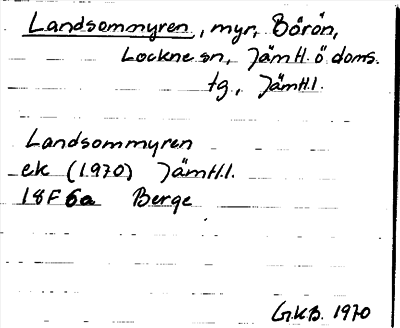 Landsommyren, myr, Börön,
Lockne sn, Jämtl. ö doms.
tg, Jämtl.
Landsommyren
ek (1970) Jämtl.
18F6a Berge
G.K.B. 1970